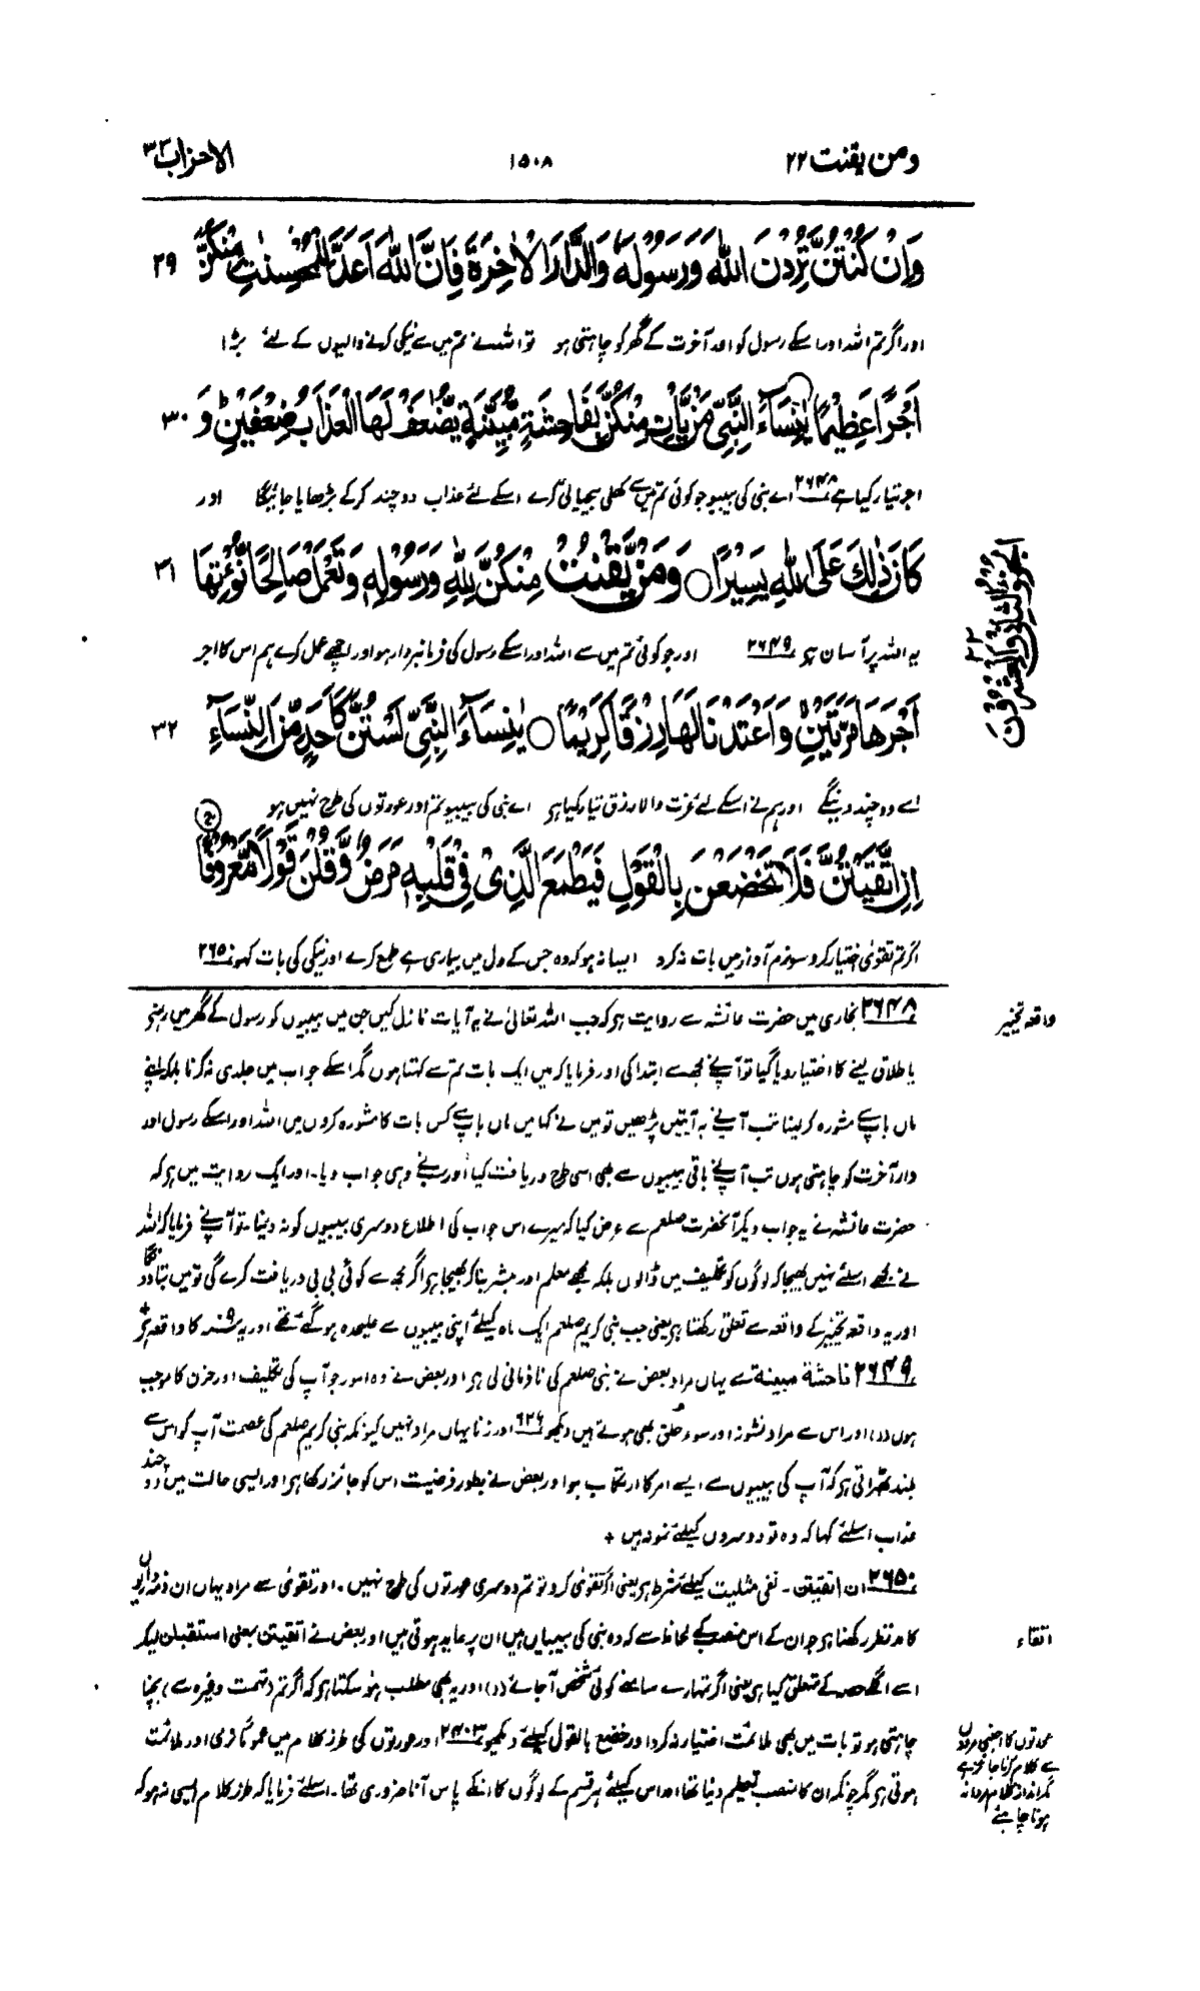 ومن یقنت ۲۲
۱۵۰۸
الاحزاب ۳۳
وَاِنْ كُنْتُنَّ تُرِدْنَ اللّٰهَ وَرَسُوْلَهٗ وَالدَّارَ الْاٰخِرَةَ فَاِنَّ اللّٰهَ اَعَدَّ لِلْمُحْسِنٰتِ مِنْكُنَّ ۲۹
اور اگر تم اللہ اور اسکے رسول کو اور آخرت کے گھر کو چاہتی ہو تو اللہ نے تم میں سے نیکی کرنے والیوں کے لئے بڑا
اَجْرًا عَظِيْمًا ○ يٰنِسَآءَ النَّبِيِّ مَنْ يَّاْتِ مِنْكُنَّ بِفَاحِشَةٍ مُّبَيِّنَةٍ يُّضٰعَفْ لَهَا الْعَذَابُ ضِعْفَيْنِ ؕ وَ ۳۰
اجر تیار کیا ہے ۲۶۴۸ اے نبی کی بیبیو جو کوئی تم میں سے کھلی بیحیائی کرے اسکے لئے عذاب دوچند کرکے بڑھایا جائیگا اور
كَانَ ذٰلِكَ عَلَى اللّٰهِ يَسِيْرًا ○ وَمَنْ يَّقْنُتْ مِنْكُنَّ لِلّٰهِ وَرَسُوْلِهٖ وَتَعْمَلْ صَالِحًا نُّؤْتِهَا ۳۱
الجزو الثانی والعشرون ۲۲
یہ اللہ پر آسان ہو ۲۶۴۹ اور جو کوئی تم میں سے اللہ اور اسکے رسول کی فرمانبردار ہو اور اچھے عمل کرے ہم اس کا اجر
اَجْرَهَا مَرَّتَيْنِ وَاَعْتَدْنَا لَهَا رِزْقًا كَرِيْمًا ○ يٰنِسَآءَ النَّبِيِّ لَسْتُنَّ كَاَحَدٍ مِّنَ النِّسَآءِ ۳۲
اسے دوچند دینگے اور ہم نے اسکے لئے عزت والا رزق تیار کیا ہو اے نبی کی بیبیو تم اور عورتوں کی طرح نہیں ہو
اِنِ اتَّقَيْتُنَّ فَلَا تَخْضَعْنَ بِالْقَوْلِ فَيَطْمَعَ الَّذِيْ فِيْ قَلْبِهٖ مَرَضٌ وَّقُلْنَ قَوْلًا مَّعْرُوْفًا
اگر تم تقویٰ اختیار کرو سو نرم آواز میں بات نہ کرو ایسا نہ ہو کہ وہ جس کے دل میں بیماری ہے طمع کرے اور نیکی کی بات کہو ۲۶۵۰
۲۶۴۸ بخاری میں حضرت عائشہ سے روایت ہو کہ جب اللہ تعالیٰ نے یہ آیات نازل کیں جن میں بیبیوں کو رسول کے گھر میں رہنے
واقعہ تخییر
یا طلاق لینے کا اختیار دیا گیا تو آپنے مجھسے ابتدا کی اور فرمایا کہ میں ایک بات تم سے کہتا ہوں مگر اسکے جواب میں جلدی نہ کرنا بلکہ اپنے
ماں باپ سے مشورہ کرلینا تب آپنے یہ آیتیں پڑھیں تو میں نے کہا میں ماں باپ سے کس بات کا مشورہ کروں میں اللہ اور اسکے رسول اور
دار آخرت کو چاہتی ہوں تب آپنے باقی بیبیوں سے بھی اسی طرح دریافت کیا اور سب نے وہی جواب دیا۔ اور ایک روایت میں ہو کہ
حضرت عائشہ نے یہ جواب دیکر آنحضرت صلعم سے عرض کیا کہ میرے اس جواب کی اطلاع دوسری بیبیوں کو نہ دینا۔ تو آپنے فرمایا کہ اللہ
نے مجھے اسلئے نہیں بھیجا کہ لوگوں کو تکلیف میں ڈالوں بلکہ مجھے معلم اور مبشر بنا کر بھیجا ہو اگر مجھ سے کوئی بی بی دریافت کرے گی تو میں بتا دونگا
اور یہ واقعہ تخییر کے واقعہ سے تعلق رکھتا ہو یعنی جب نبی کریم صلعم ایک ماہ کیلئے اپنی بیبیوں سے علیحدہ ہو گئے تھے اور یہ سنہ ۹ کا واقعہ ہو +
۲۶۴۹ فاحشة مبینة سے یہاں مراد بعض نے نبی صلعم کی نافرمانی لی ہو اور بعض نے وہ امور جو آپ کی تکلیف اور حزن کا موجب
ہوں (ر) اور اس سے مراد نشوز اور سوء خلق بھی ہوتے ہیں دیکھو ۶۲۶ اور زنا یہاں مراد نہیں کیونکہ نبی کریم صلعم کی عصمت آپ کو اس سے
بلند ٹھہراتی ہو کہ آپ کی بیبیوں سے ایسے امر کا ارتکاب ہو اور بعض نے بطور فرضیت اس کو جائز رکھا ہو اور ایسی حالت میں دوچند
عذاب اسلئے کہا کہ وہ تو دوسروں کیلئے نمونہ ہیں +
۲۶۵۰ ان اتقیتن۔ نفی مثلیت کیلئے شرط ہو یعنی اگر تقویٰ کرو تو تم دوسری عورتوں کی طرح نہیں۔ اور تقویٰ سے مراد یہاں ان ذمہ داریوں
کا مدنظر رکھنا ہو جو ان کے اس منصب کے لحاظ سے کہ وہ نبی کی بیبیاں ہیں ان پر عاید ہوتی ہیں اور بعض نے اتقیتن بمعنی استقبلن لیکر
اتقاء
اسے اگلے حصہ کے متعلق کیا ہو یعنی اگر تمہارے سامنے کوئی شخص آجائے (ر) اور یہ بھی مطلب ہو سکتا ہو کہ اگر تم (تہمت وغیرہ سے) بچنا
چاہتی ہو تو بات میں بھی ملائمت اختیار نہ کرو اور خضع بالقول کیلئے دیکھو ۲۴۰۳ اور عورتوں کی طرز کلام میں عموماً نرمی اور ملائمت
ہوتی ہو مگر چونکہ ان کا منصب تعلیم دینا تھا اور اس کیلئے ہر قسم کے لوگوں کا انکے پاس آنا ضروری تھا۔ اسلئے فرمایا کہ طرز کلام ایسی نہ ہو کہ
عورتوں کا اجنبی مردوں
سے کلام کرنا جائز ہے
مگر انداز کلام مردانہ
ہونا چاہئے